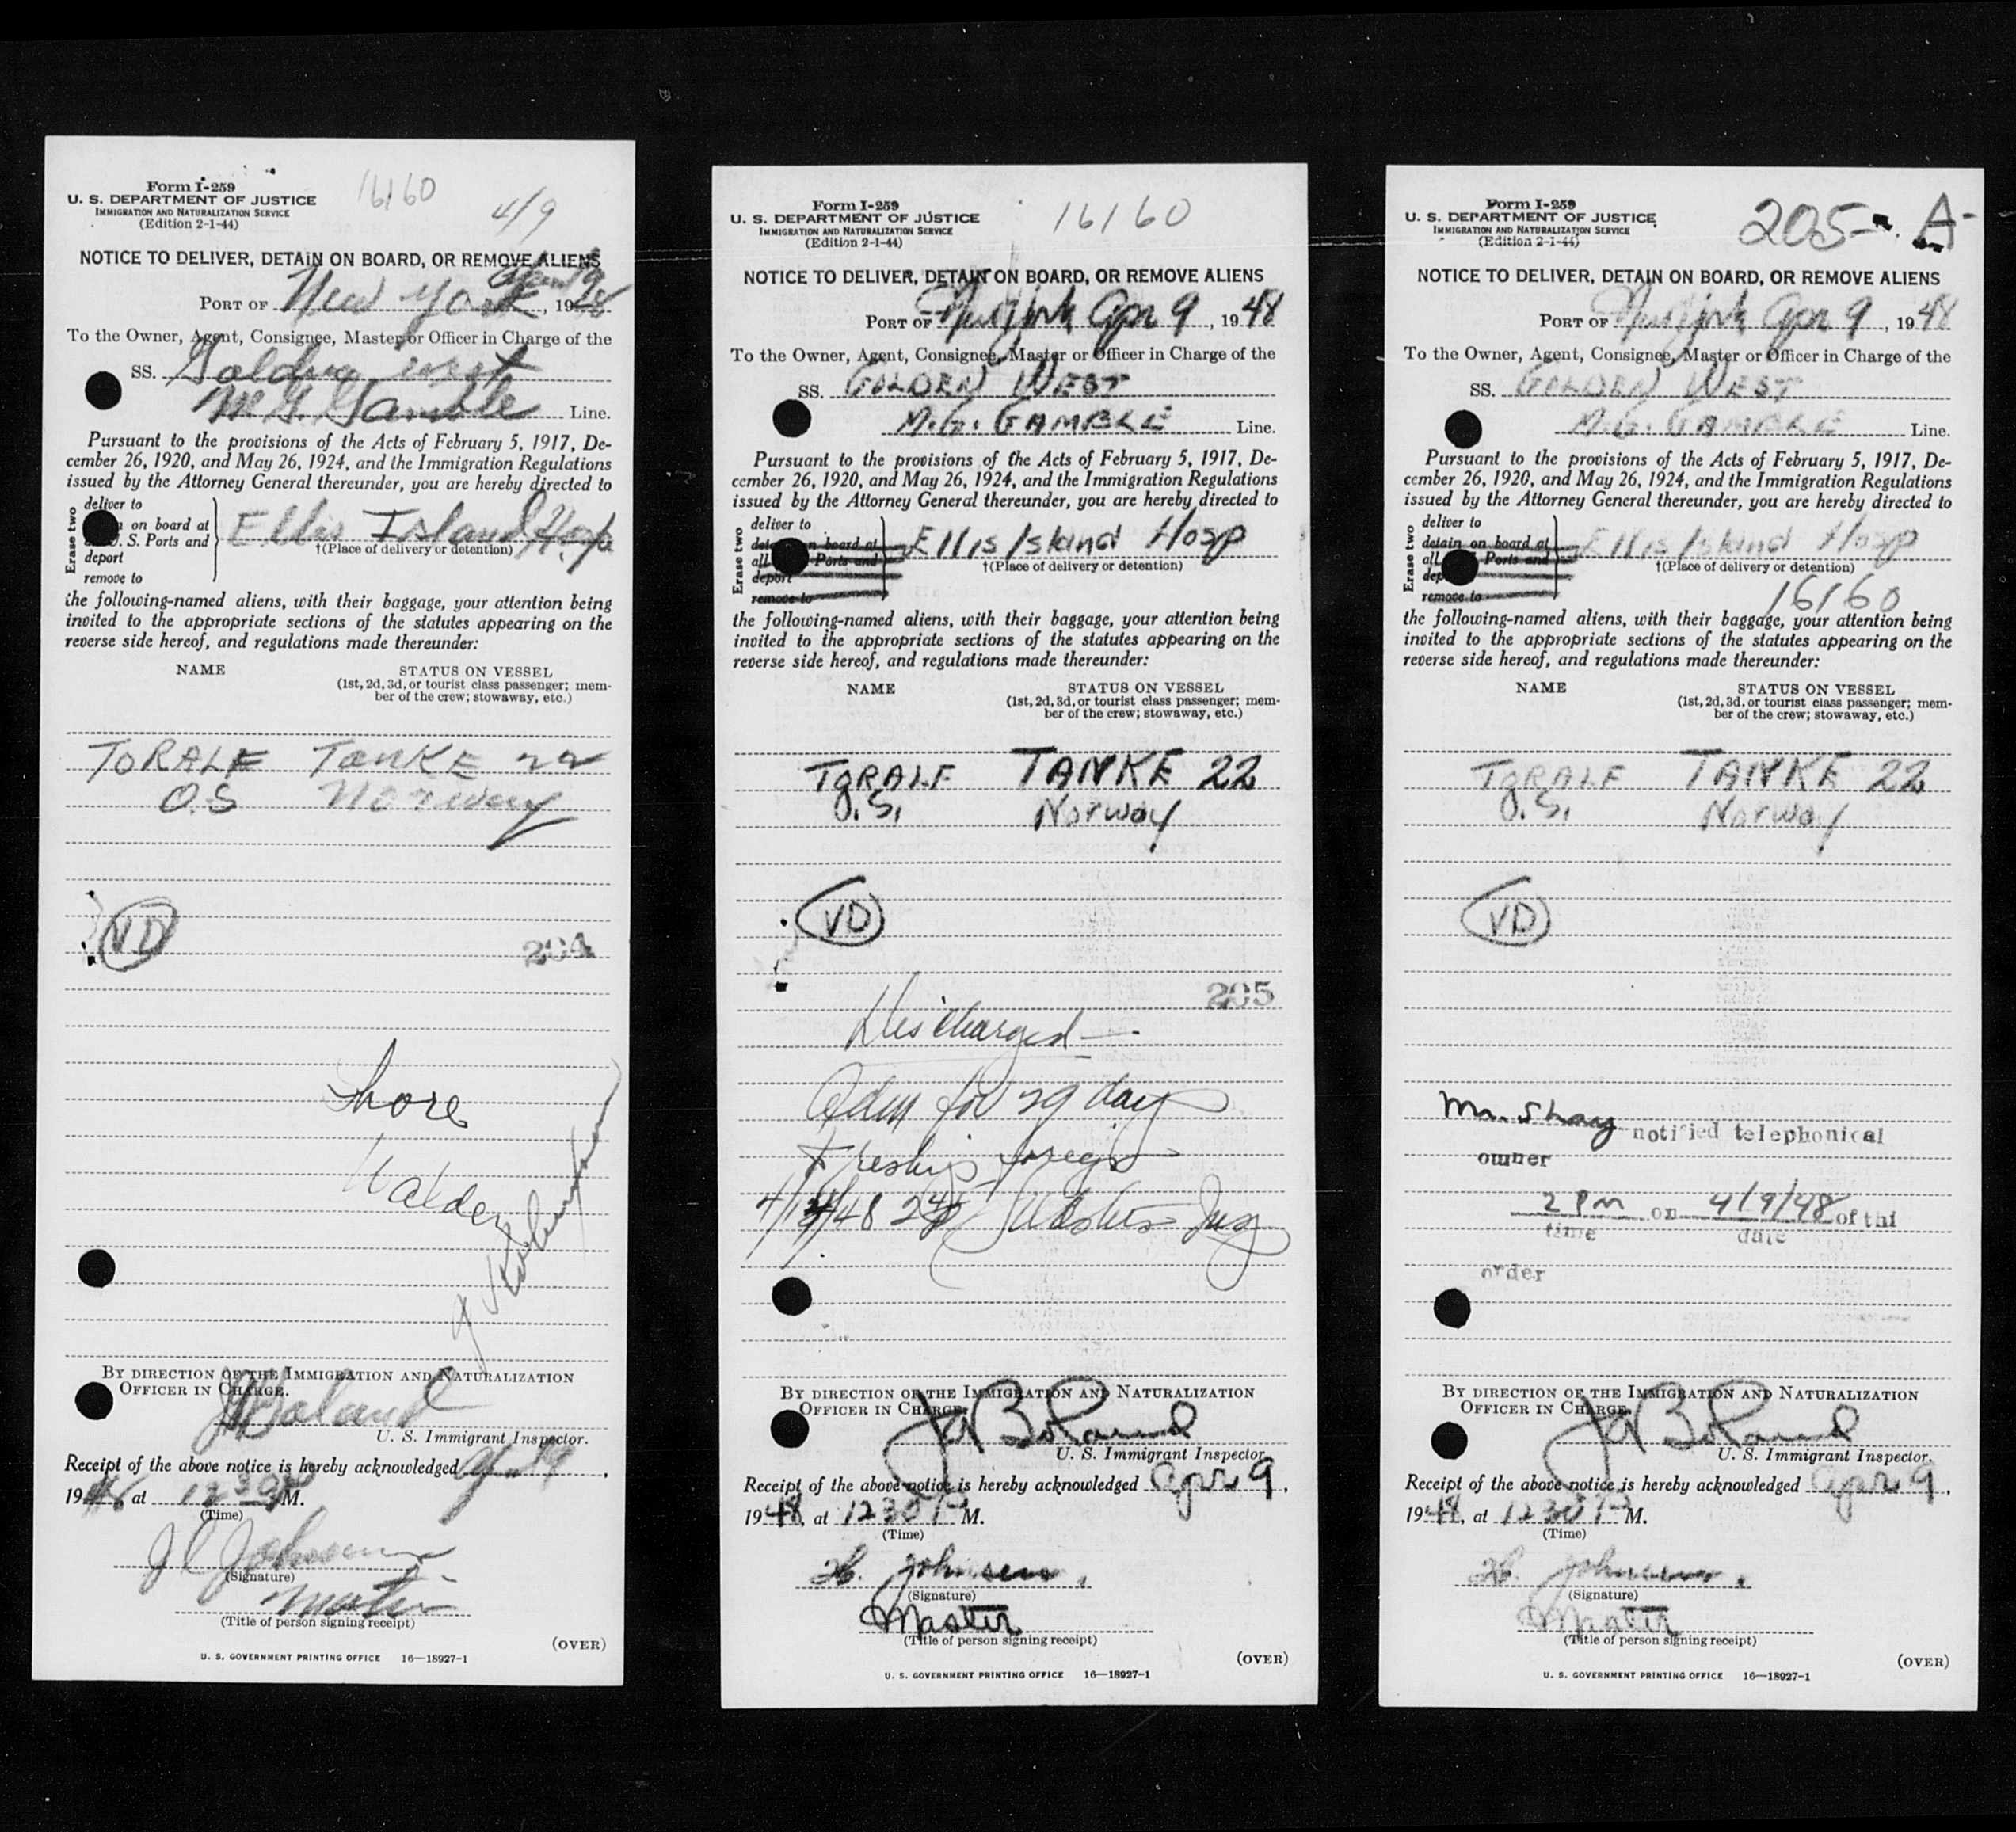 Form I-259
U. S. DEPARTMENT OF JUSTICE
IMMIGRATION AND NATURALIZATION SERVICE
(Edition 2-1-44)
16160
4/9
NOTICE TO DELIVER, DETAIN ON BOARD, OR REMOVE ALIENS
PORT OF New York, 1948
To the Owner, Agent, Consignee, Master or Officer in Charge of the
SS. Golden West
M. G. Gamble Line.
Pursuant to the provisions of the Acts of February 5, 1917, De-
cember 26, 1920, and May 26, 1924, and the Immigration Regulations
issued by the Attorney General thereunder, you are hereby directed to
Erase two
deliver to
on board at
S. Ports and
deport
remove to
Ellis Island Hosp
†(Place of delivery or detention)
the following-named aliens, with their baggage, your attention being
invited to the appropriate sections of the statutes appearing on the
reverse side hereof, and regulations made thereunder:
NAME STATUS ON VESSEL
(1st, 2d, 3d, or tourist class passenger; mem-
ber of the crew; stowaway, etc.)
TORALF TANKE 22
O.S Norway
VD
204
Shore
Walder
BY DIRECTION OF THE IMMIGRATION AND NATURALIZATION
OFFICER IN CHARGE.
J A Boland
U. S. Immigrant Inspector.
Receipt of the above notice is hereby acknowledged Apr 9,
1948 at 12 30 P M.
(Time)
Johnsen
(Signature)
Master
(Title of person signing receipt)
(OVER)
U. S. GOVERNMENT PRINTING OFFICE 16—18927-1
Form I-259
U. S. DEPARTMENT OF JUSTICE
IMMIGRATION AND NATURALIZATION SERVICE
(Edition 2-1-44)
16160
NOTICE TO DELIVER, DETAIN ON BOARD, OR REMOVE ALIENS
PORT OF New York Apr 9, 1948
To the Owner, Agent, Consignee, Master or Officer in Charge of the
SS. GOLDEN WEST
M. G. GAMBLE Line.
Pursuant to the provisions of the Acts of February 5, 1917, De-
cember 26, 1920, and May 26, 1924, and the Immigration Regulations
issued by the Attorney General thereunder, you are hereby directed to
Erase two
deliver to
on board at
all Ports and
deport
remove to
Ellis Island Hosp
†(Place of delivery or detention)
the following-named aliens, with their baggage, your attention being
invited to the appropriate sections of the statutes appearing on the
reverse side hereof, and regulations made thereunder:
NAME STATUS ON VESSEL
(1st, 2d, 3d, or tourist class passenger; mem-
ber of the crew; stowaway, etc.)
TORALF TANKE 22
O.S. Norway
VD
205
Discharged —
Adm for 29 days
+ reship foreign
Insp
BY DIRECTION OF THE IMMIGRATION AND NATURALIZATION
OFFICER IN CHARGE.
J A Boland
U. S. Immigrant Inspector.
Receipt of the above notice is hereby acknowledged Apr 9,
1948, at 12 30 P M.
(Time)
Johnsen.
(Signature)
Master
(Title of person signing receipt)
(OVER)
U. S. GOVERNMENT PRINTING OFFICE 16—18927-1
Form I-259
U. S. DEPARTMENT OF JUSTICE
IMMIGRATION AND NATURALIZATION SERVICE
(Edition 2-1-44)
205-A-
NOTICE TO DELIVER, DETAIN ON BOARD, OR REMOVE ALIENS
PORT OF New York Apr 9, 1948
To the Owner, Agent, Consignee, Master or Officer in Charge of the
SS. GOLDEN WEST
M. G. GAMBLE Line.
Pursuant to the provisions of the Acts of February 5, 1917, De-
cember 26, 1920, and May 26, 1924, and the Immigration Regulations
issued by the Attorney General thereunder, you are hereby directed to
Erase two
deliver to
detain on board at
all Ports and
dep
remove to
Ellis Island Hosp
†(Place of delivery or detention)
16160
the following-named aliens, with their baggage, your attention being
invited to the appropriate sections of the statutes appearing on the
reverse side hereof, and regulations made thereunder:
NAME STATUS ON VESSEL
(1st, 2d, 3d, or tourist class passenger; mem-
ber of the crew; stowaway, etc.)
TORALF TANKE 22
O.S. Norway
VD
Mr. Shay notified telephonical
owner
2 PM on 4/9/48 of thi
time date
order
BY DIRECTION OF THE IMMIGRATION AND NATURALIZATION
OFFICER IN CHARGE.
J A Boland
U. S. Immigrant Inspector.
Receipt of the above notice is hereby acknowledged Apr 9,
1948, at 12 30 P M.
(Time)
Johnsen.
(Signature)
Master
(Title of person signing receipt)
(OVER)
U. S. GOVERNMENT PRINTING OFFICE 16—18927-1